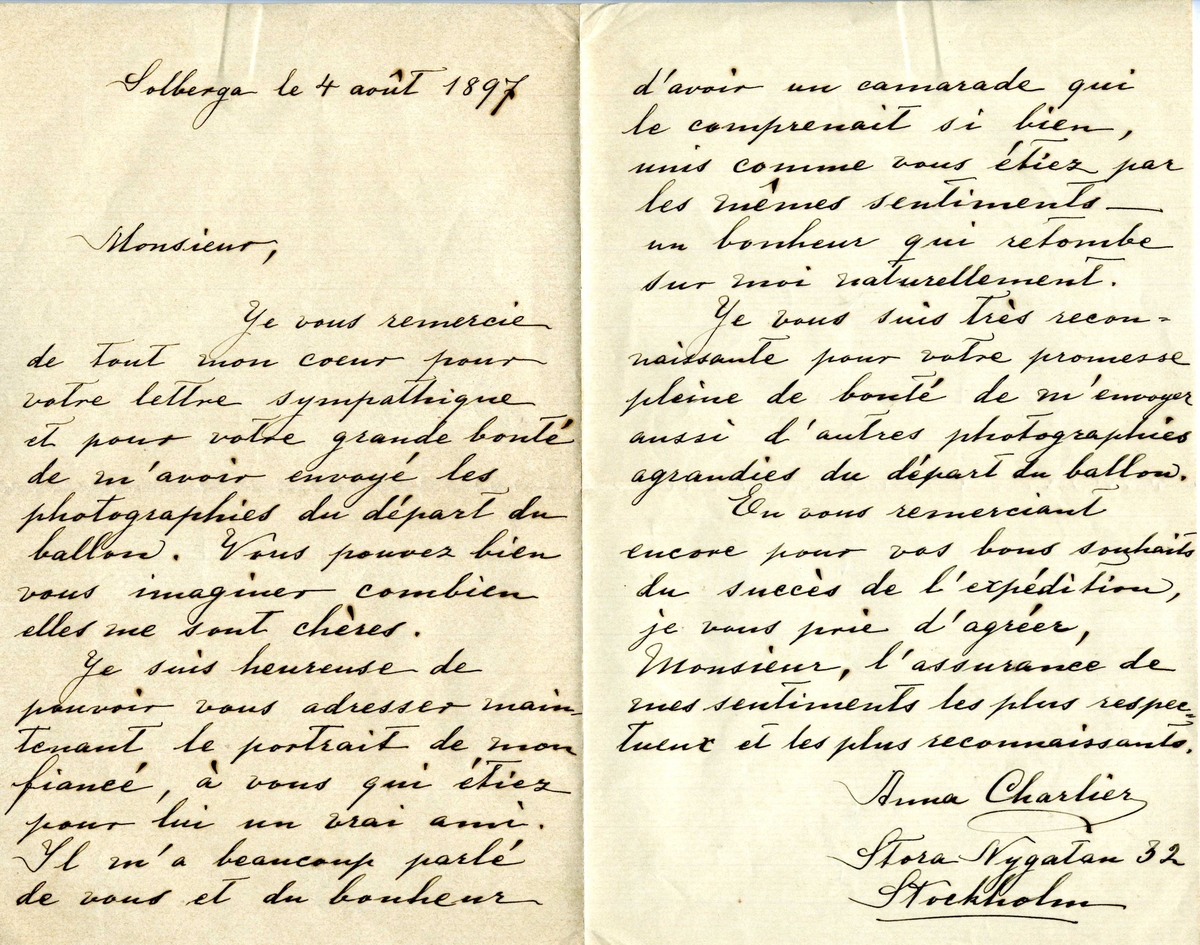 Solberga le 4 août 1897
Monsieur,
Je vous remercie
de tout mon coeur pour
votre lettre sympathique
et pour votre grande bonté
de m'avoir envoyé les
photographies du départ du
ballon. Vous pouvez bien
vous imaginer combien
elles me sont chères.
Je suis heureuse de
pouvoir vous adresser main-
tenant le portrait de mon
fiancé, à vous qui étiez
pour lui un vrai ami.
Il m'a beaucoup parlé
de vous et du bonheur
d'avoir un camarade qui
le comprenait si bien,
unis comme vous étiez par
les mêmes sentiments—
un bonheur qui retombe
sur moi naturellement.
Je vous suis très recon-
naissante pour votre promesse
pleine de bonté de m'envoyer
aussi d'autres photographies
agrandies du départ du ballon.
En vous remerciant
encore pour vos bons souhaits
du succès de l'expédition,
je vous prie d'agréer,
Monsieur, l'assurance de
mes sentiments les plus respec-
tueux et les plus reconnaissants.
Anna Charlier
Stora Nygatan 32
Stockholm